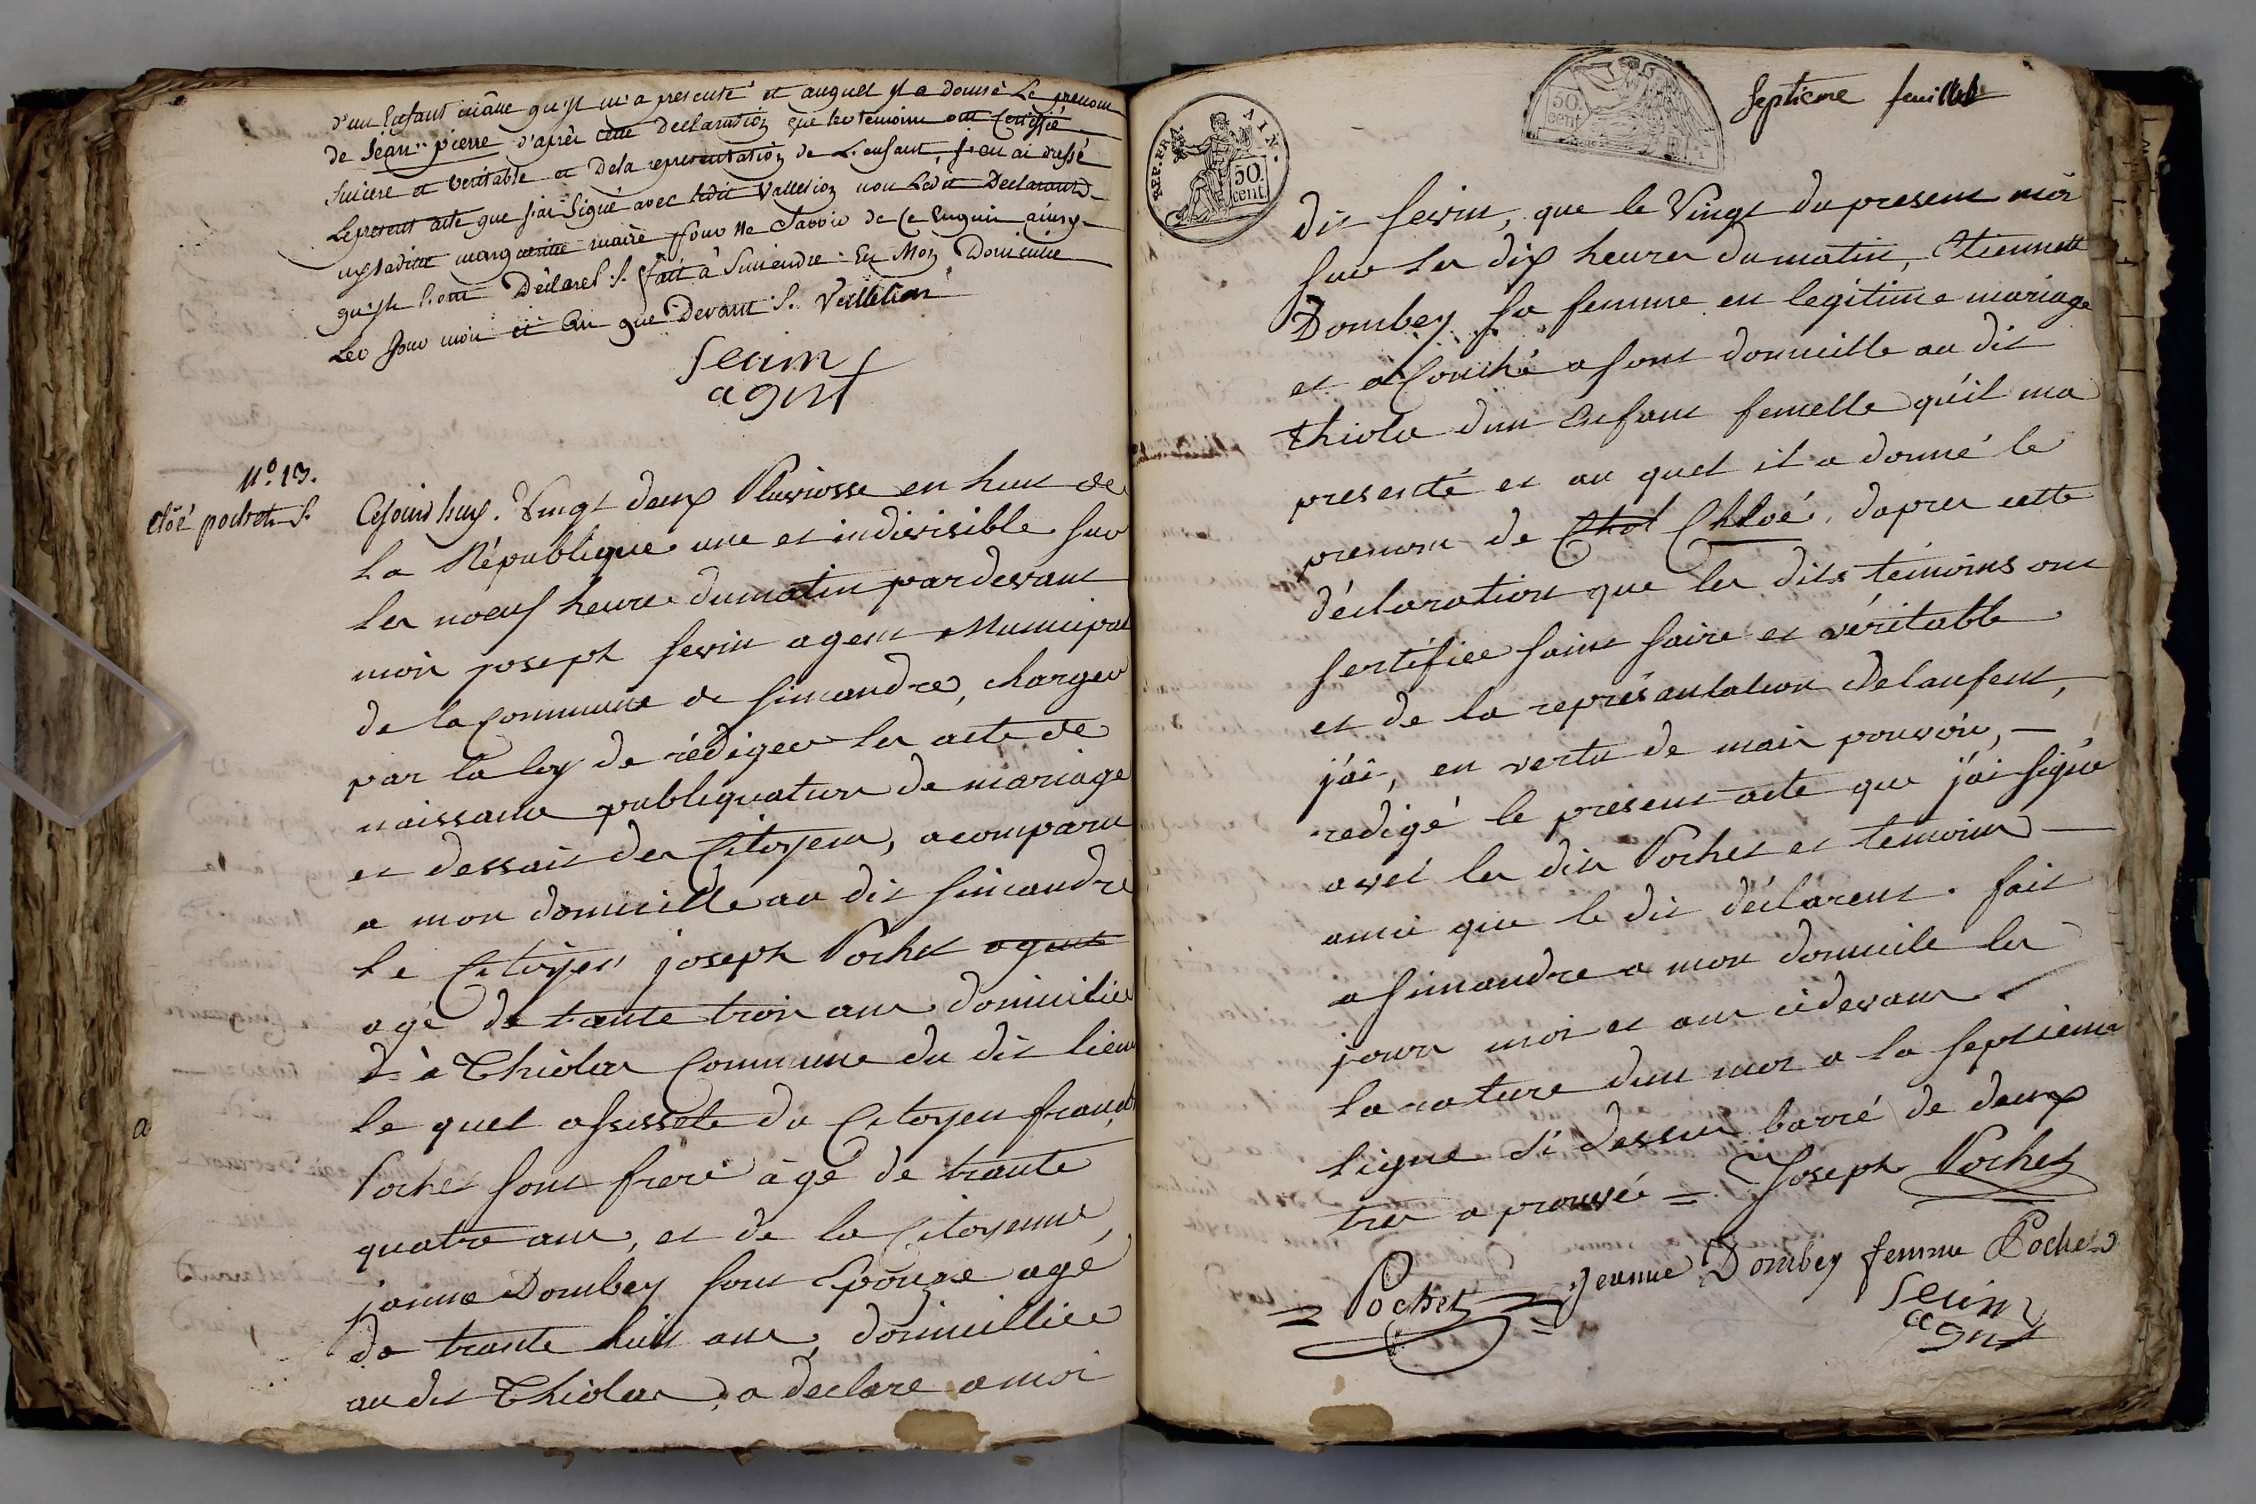 d'un Enfant mâue qu'il m'a presenté et auquel il a donné Le prenom
de jean pierre d'après cette declaration que les temoins ont Certifié
sincere et veritable et dela representation de L'enfant, j'en ai dressé
Le present acte que j'ai signé avec ledit Valletion non Ledit Declarant
ny Ladite marguerite maire pour ne savoir de ce Enquis ainsy
qu'ils l'ont Déclaré ./. fait à Simendre En Mon Domicile
Les jour mois et an que Devant ./. Valletion
Sevin
agnt
N.º 13.
cloé pochet ./.
Cejourd'huy. Vingt deux Pluviosse en huit de
La République une et indivisible sur
les noeuf heure du matin par devant
moi joseph Sevin agent Municipal
de la Commune de Simandre, charger
par la loy de rédiger les acte de
naissance publiquation de mariage
et dessait des Citoyens, a comparu
a mon domicille au dit Simandre
le Citoyen joseph Pochet agent
agé de trante trois ans domicilié
d à Thiolas Commune du dit lieu
le quel assissté du Citoyen franc
Pochet sont frere âgé de trante
quatre ans, et de la Citoyenne
janne Dombey sont Epouze agé
de trante huit ans, domicilliée
au dit Thiolas, a declare a moi
REP. FRA. 50. cent
50. cent
Septieme feuillet
dit Sevin, que le Vingt du present moi
sur les dix heures du matin, Etiennette
Dombey sa femme en legitime mariage
et acouché a sont domicille au dit
Thiola d'un Enfant femelle qu'il ma
presenté et au quel il a donné le
prenom de Chol Chloé, dapres cette
déclaration que les dits témoins ont
sertifiee saint saire et véritable
et de la représantation delanfent,
j'ai, en vertu de mais pouvoir, —
redigé le present acte que j'ai signé
avec les dits Pochet et temoins —
ansi que le dit déclarent. fait
a Simandre a mon domicile les
jours moi et ans cidevans
la rature d'un mot a la septieme
ligne si dessus barré de deux
tres aprouvé = Joseph Pochet
= Pochet = Jeanne Dombey femme Pochet
Sevin
agnt